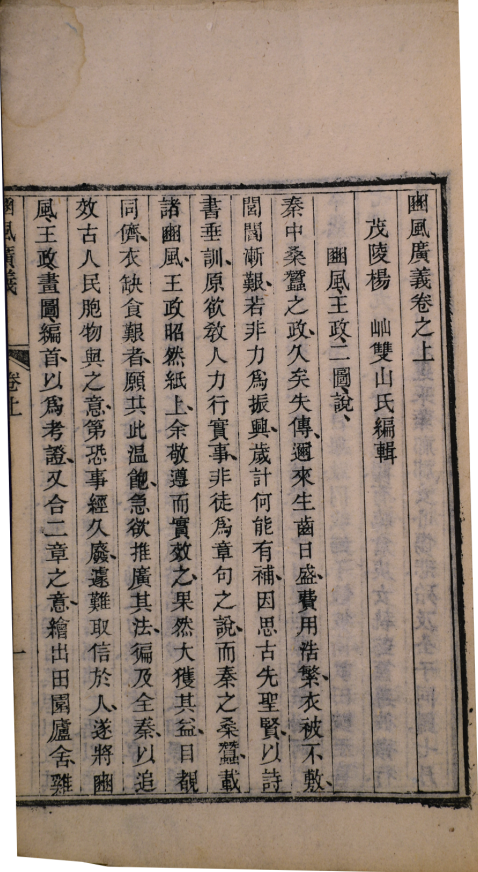 豳風廣義卷之上
茂陵楊 屾雙山氏編輯
豳風、王政二圖說、
秦中桑蠶之政、久矣失傳、邇來生齒日盛、費用浩繁、衣被不敷、
閭閻漸艱、若非力爲振興、歲計何能有補、因思古先聖賢、以詩
書垂訓、原欲敎人力行實事、非徒爲章句之說、而秦之桑蠶、載
諸豳風、王政昭然紙上、余敬遵而實效之、果然大獲其益、目覩
同儕、衣缺食艱者、願其此溫飽、急欲推廣其法、徧及全秦、以追
效古人民胞物與之意、第恐事經久廢、遽難取信於人、遂將豳
風、王政、畫圖、編首、以爲考證、又合二章之意、繪出田園廬舍、雞
豳風廣義
卷上
一